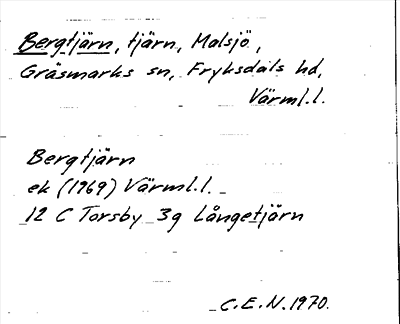 Bergtjärn, tjärn, Malsjö,
Gräsmarks sn, Fryksdals hd,
Värml.l.
Bergtjärn
ek (1969) Värml.l.
12 C Torsby 3g Långetjärn
C.E.N. 1970.